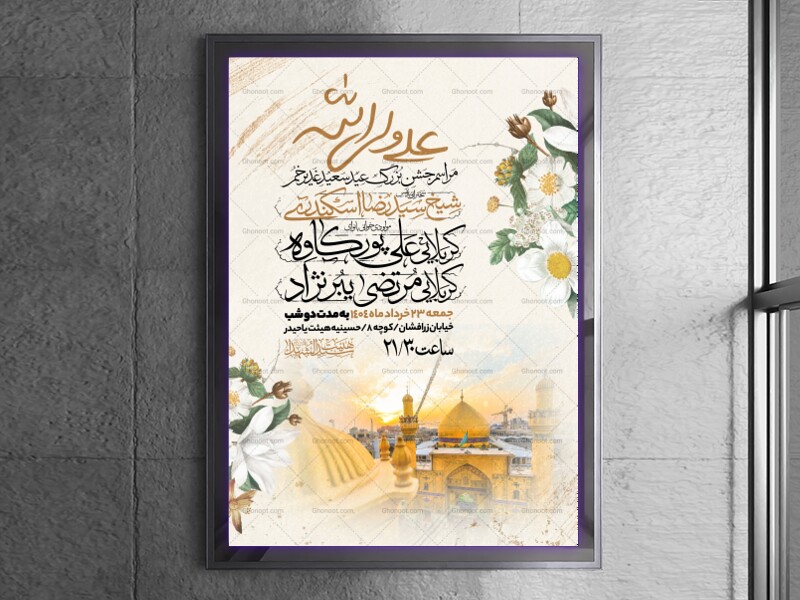 علی ولی الله
مراسم جشن بزرگ عید سعید غدیر خم
شیخ سیدرضا اسکندری
مولودی خوانی بانوای
کربلایی علی پورکاوه
کربلایی مرتضی ببرنژاد
جمعه ۲۳ خرداد ماه ۱۴۰۴ به مدت دو شب
خیابان زرافشان/کوچه ۸/حسینیه هیئت یاحیدر
ساعت ۲۱/۳۰
Ghonoot.com